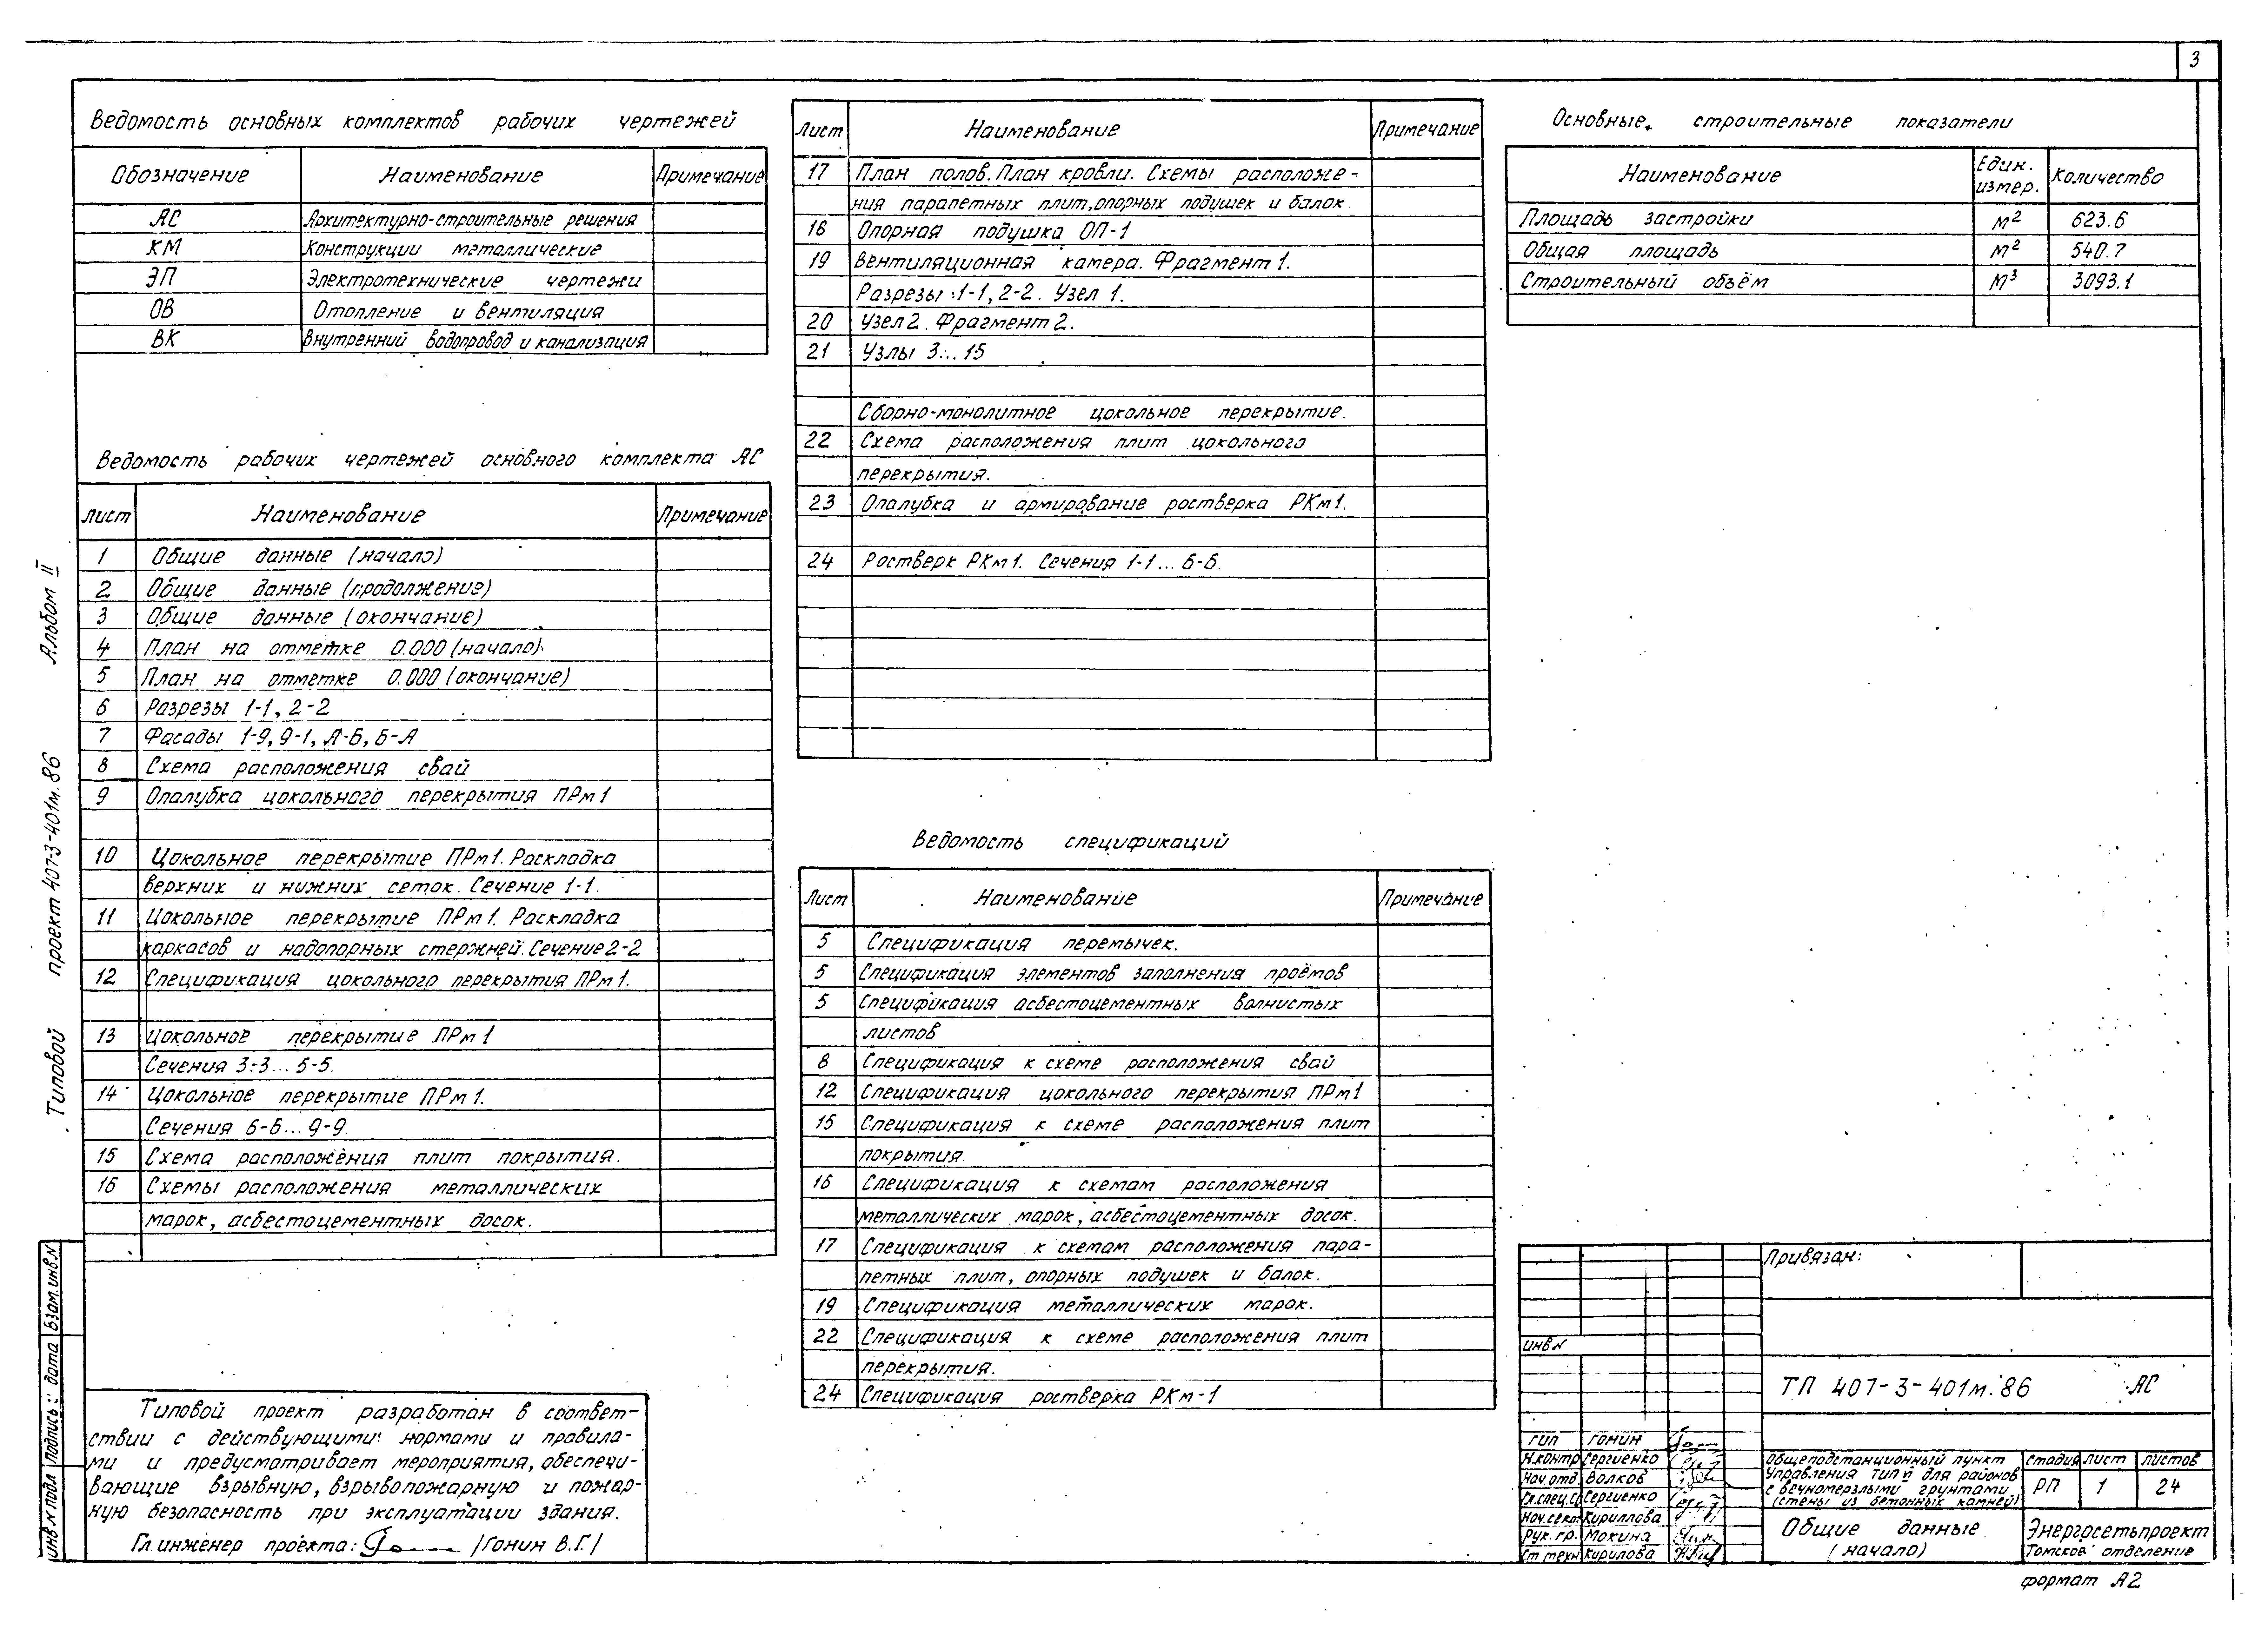 3
Ведомость основных комплектов рабочих чертежей
Обозначение Наименование Примечание
АС Архитектурно-строительные решения
КМ Конструкции металлические
ЭП Электротехнические чертежи
ОВ Отопление и вентиляция
ВК Внутренний водопровод и канализация
Ведомость рабочих чертежей основного комплекта АС
Лист Наименование Примечание
1 Общие данные (начало)
2 Общие данные (продолжение)
3 Общие данные (окончание)
4 План на отметке 0.000 (начало).
5 План на отметке 0.000 (окончание)
6 Разрезы 1-1, 2-2
7 Фасады 1-9, 9-1, А-Б, Б-А
8 Схема расположения свай
9 Опалубка цокольного перекрытия ПРм1
10 Цокольное перекрытие ПРм1. Раскладка
верхних и нижних сеток. Сечение 1-1.
11 Цокольное перекрытие ПРм1. Раскладка
каркасов и надопорных стержней. Сечение 2-2
12 Спецификация цокольного перекрытия ПРм1.
13 Цокольное перекрытие ПРм1
Сечения 3-3... 5-5.
14 Цокольное перекрытие ПРм1.
Сечения 6-6... 9-9.
15 Схема расположения плит покрытия.
16 Схемы расположения металлических
марок, асбестоцементных досок.
Типовой проект разработан в соответ-
ствии с действующими нормами и правила-
ми и предусматривает мероприятия, обеспечи-
вающие взрывную, взрывопожарную и пожар-
ную безопасность при эксплуатации здания.
Гл. инженер проекта: /Гонин В.Г./
Лист Наименование Примечание
17 План полов. План кровли. Схемы расположе-
ния парапетных плит, опорных подушек и балок.
18 Опорная подушка ОП-1
19 Вентиляционная камера. Фрагмент 1.
Разрезы: 1-1, 2-2. Узел 1.
20 Узел 2. Фрагмент 2.
21 Узлы 3... 15
Сборно-монолитное цокольное перекрытие.
22 Схема расположения плит цокольного
перекрытия.
23 Опалубка и армирование ростверка РКм1.
24 Ростверк РКм1. Сечения 1-1... 6-6.
Ведомость спецификаций
Лист Наименование Примечание
5 Спецификация перемычек.
5 Спецификация элементов заполнения проёмов
5 Спецификация асбестоцементных волнистых
листов
8 Спецификация к схеме расположения свай
12 Спецификация цокольного перекрытия ПРм1
15 Спецификация к схеме расположения плит
покрытия.
16 Спецификация к схемам расположения
металлических марок, асбестоцементных досок.
17 Спецификация к схемам расположения пара-
петных плит, опорных подушек и балок.
19 Спецификация металлических марок.
22 Спецификация к схеме расположения плит
перекрытия.
24 Спецификация ростверка РКм-1
Основные строительные показатели
Наименование Един. измер. Количество
Площадь застройки м² 623.6
Общая площадь м² 540.7
Строительный объём м³ 3093.1
Привязан:
инв №
ТП 407-3-401м.86 АС
ГИП Гонин
Н.контр Сергиенко
Нач.отд Волков
Гл.спец.С Сергиенко
Нач.сек Кириллова
Рук. гр. Мокина
Ст техн Кирилова
Общеподстанционный пункт
управления тип для районов
с вечномерзлыми грунтами
(стены из бетонных камней)
Стадия Лист Листов
РП 1 24
Общие данные
(начало)
Энергосетьпроект
Томское отделение
формат А2
Типовой проект 407-3-401м.86 Альбом II
Инв № подл Подпись и дата Взам. инв №